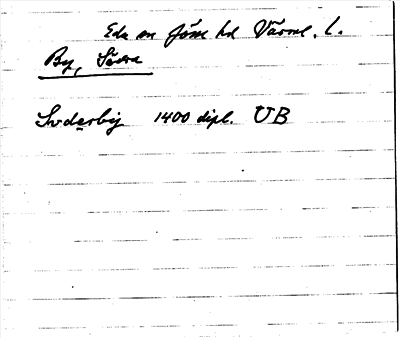 Eda sn Jösse hd Värml. l.
By, Södra
Suderby 1400 dipl. UB